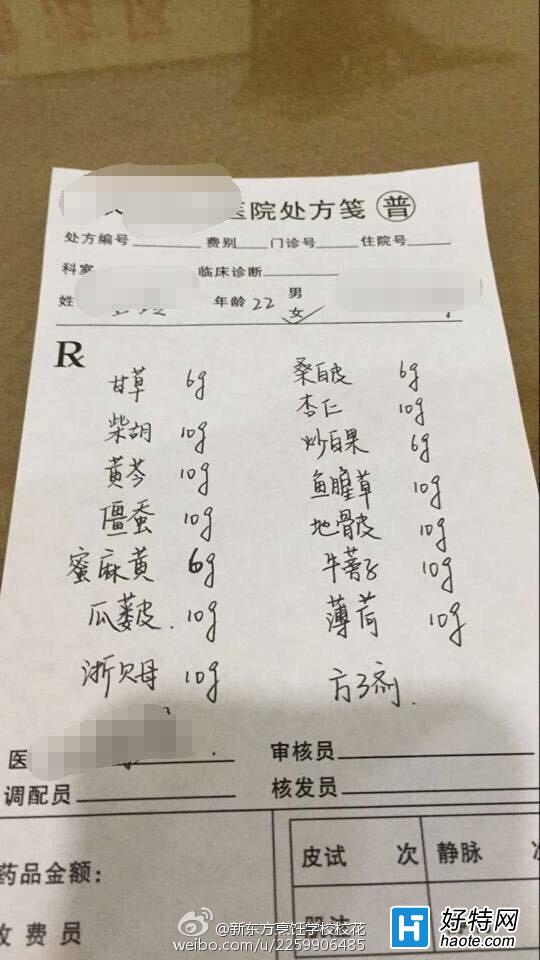 医院处方笺 普
处方编号 费别 门诊号 住院号
科室 临床诊断
姓 年龄 22 男
女
R
甘草 6g 桑白皮 6g
柴胡 10g 杏仁 10g
黄芩 10g 炒白果 6g
僵蚕 10g 鱼腥草 10g
蜜麻黄 6g 地骨皮 10g
瓜蒌皮. 10g 牛蒡子 10g
浙贝母 10g 薄荷 10g
方3剂.
医 审核员
调配员 核发员
药品金额: 皮试 次 静脉 次
收费员
@新东方烹饪学校校花
weibo.com/u/2259906485
好特网
haote.com